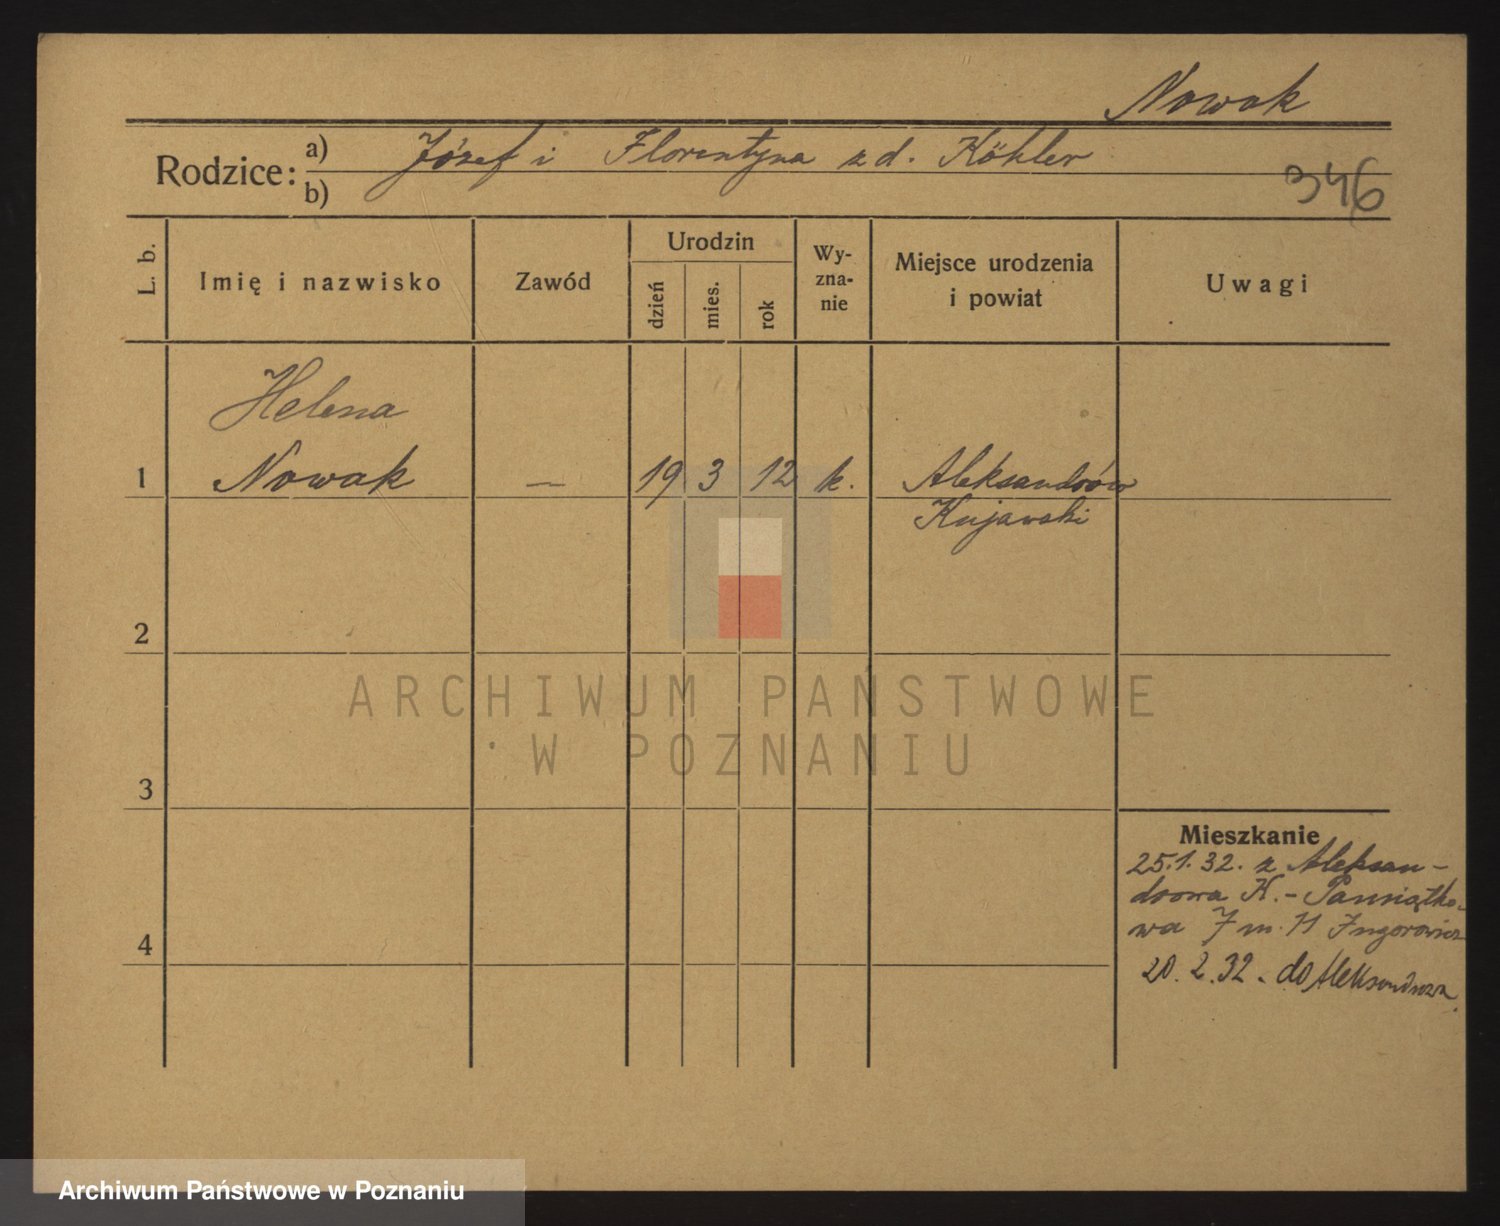 Nowak
Rodzice: a) Józef i Florentyna z d. Köhler
b)
346
L. b.
Imię i nazwisko
Zawód
Urodzin
dzień
mies.
rok
Wy-
zna-
nie
Miejsce urodzenia
i powiat
Uwagi
Helena
1 Nowak — 19 3 12 k. Aleksandrów
Kujawski
2
ARCHIWUM PAŃSTWOWE
W POZNANIU
3
Mieszkanie
25.1.32. z Aleksan-
drowa K. - Pamiątko-
wa 7 m. 11
4
20.2.32. do Aleksandrowa
Archiwum Państwowe w Poznaniu